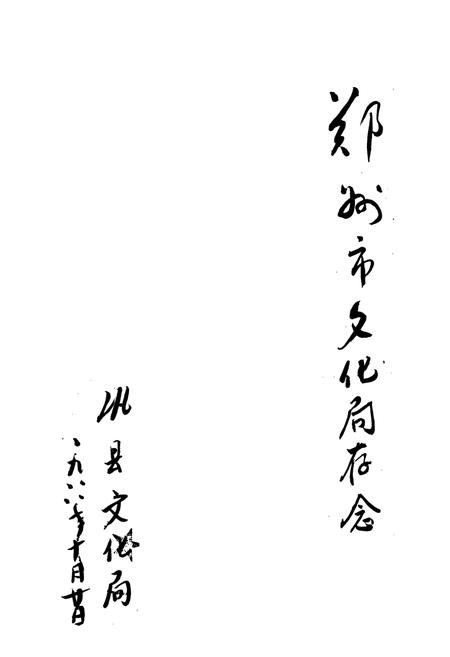 郑州市文化局存念
县文化局
一九八八年十月廿日